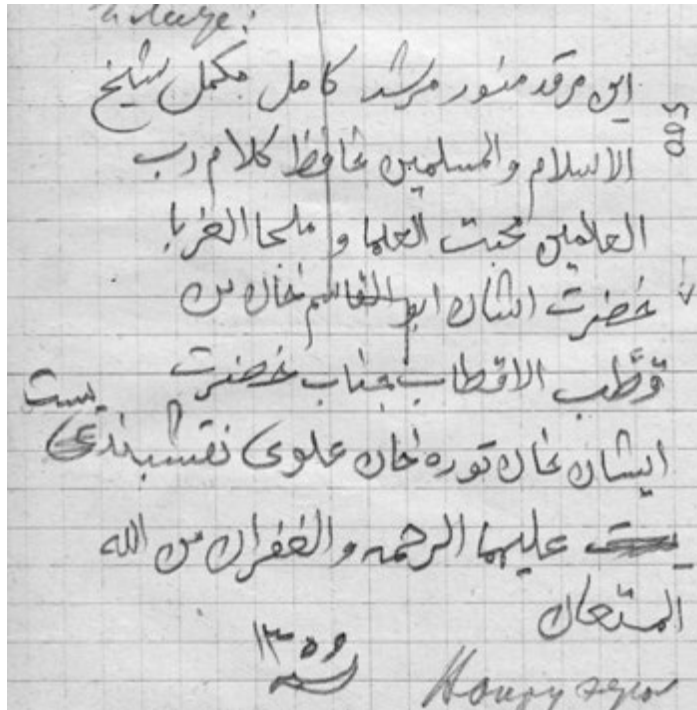 این مرقد منور مرشد کامل مکمل شیخ
الاسلام والمسلمین حافظ کلام رب
العالمین محبت العلما و ملجا الغربا
حضرت ایشان ابو القاسم خان بن
قطب الاقطاب جناب حضرت
ایشان خان توره خان علوی نقشبندی
یست
علیهما الرحمه والغفران من الله
المتعان
سنه ۱۳۵۹